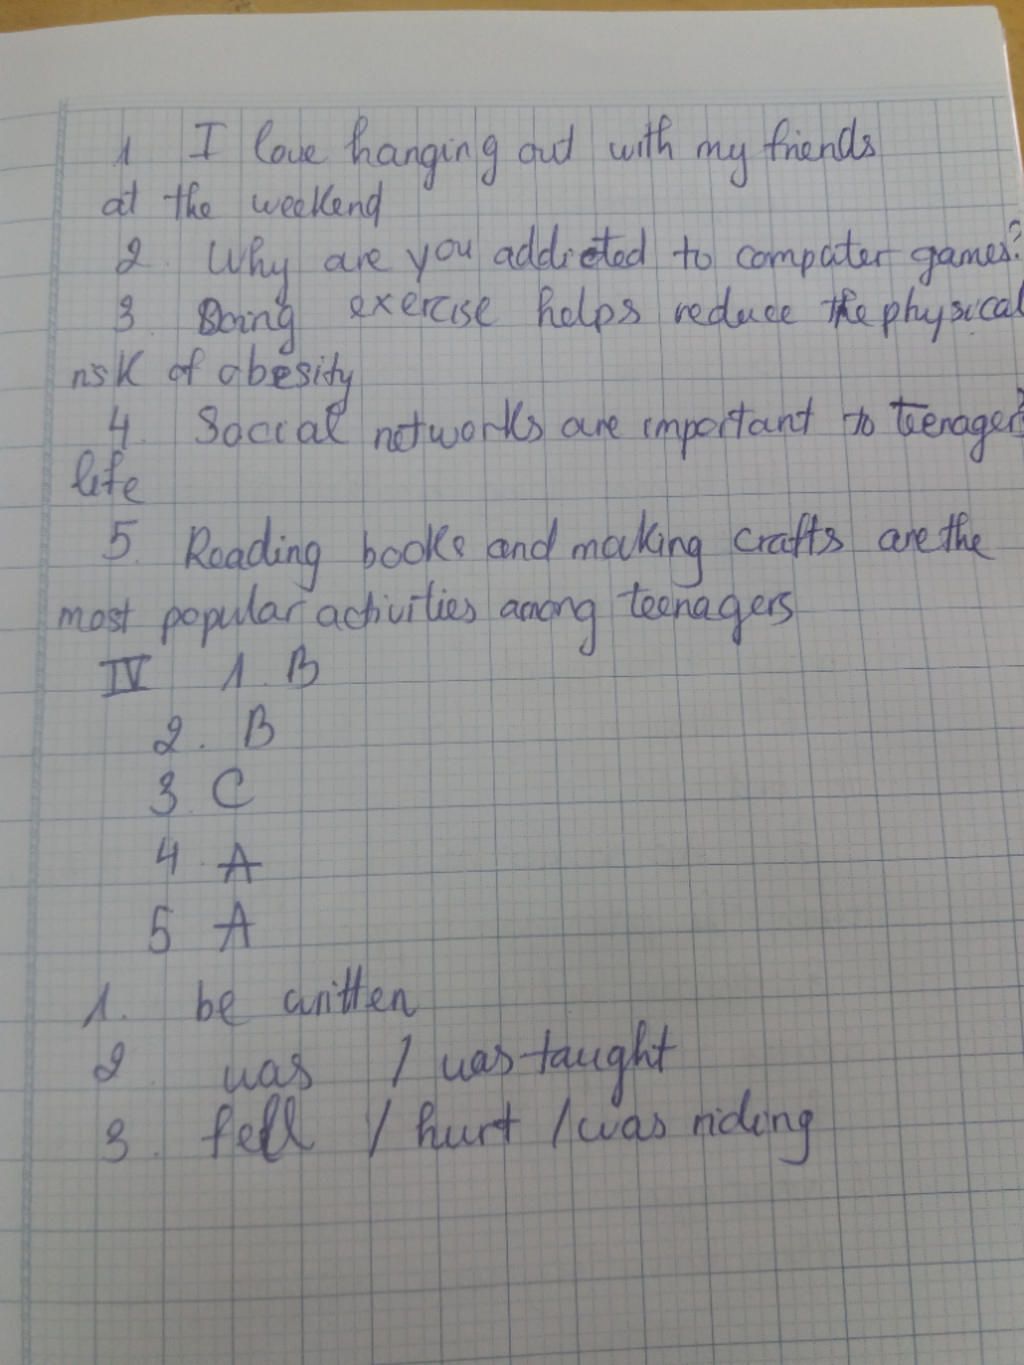 1 I love hanging out with my friends
at the weekend
2. Why are you addicted to computer games?
3. Doing exercise helps reduce the physical
risk of obesity
4. Social networks are important to teenagers
life
5. Reading books and making crafts are the
most popular activities among teenagers
IV 1. B
2. B
3 C
4. A
5 A
1. be written
2. was / was taught
3. fell / hurt / was riding